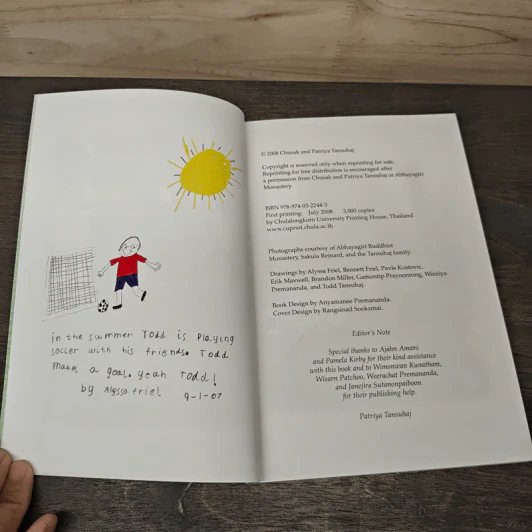 in the summer Todd is Playing
soccer with his friends. Todd
makes a goal. yeah Todd!
by Alyssa friel
9-1-07
© 2008 Chusak and Patriya Tansuhaj
Copyright is reserved only when reprinting for sale.
Reprinting for free distribution is encouraged after
a permission from Chusak and Patriya Tansuhaj or Abhayagiri
Monastery.
ISBN 978-974-03-2244-3
First printing: July 2008 3,000 copies
by Chulalongkorn University Printing House, Thailand
www.cuprint.chula.ac.th
Photographs courtesy of Abhayagiri Buddhist
Monastery, Sakula Reinard, and the Tansuhaj family.
Drawings by Alyssa Friel, Bennett Friel, Pavle Kostovic,
Erik Maxwell, Brandon Miller, Gamontip Praynontong, Winriya
Premananda, and Todd Tansuhaj.
Book Design by Anyamanee Premananda,
Cover Design by Rangsinad Sooksmai.
Editor's Note
Special thanks to Ajahn Amaro
and Pamela Kirby for their kind assistance
with this book and to Wimonwan Kunatham,
Wisarn Patchoo, Weerachat Premananda,
and Janejira Sutanonpaiboon
for their publishing help.
Patriya Tansuhaj